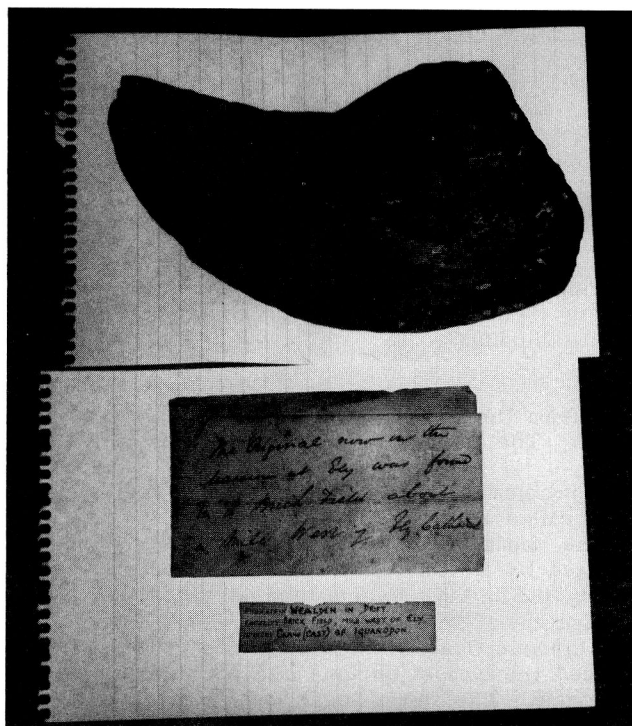 The Original now in the
Museum at Ely was found
Brick Field about
a Mile West of Ely Cathedral
WEALDEN IN DRIFT
BRICK FIELD, MILE WEST OF ELY
CLAW (CAST) OF IGUANODON